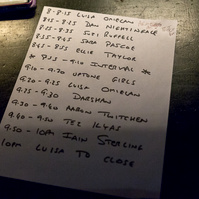 8-8.15 LUISA OMIELAN
8.15-8.25 DAN NIGHTINGALE
8.25-8.35 SUZI RUFFELL
8.35-8.45 SARA PASCOE
8.45-8.55 ELLIE TAYLOR
* 8.55-9.10 INTERVAL *
9.10-9.20 UPTONE GIRLS
9.20-9.25 LUISA OMIELAN
9.25-9.30 DARSHAN
9.30-9.40 AARON TWITCHEN
9.40-9.50 TEZ ILYAS
9.50-10PM IAIN STIRLING
10PM LUISA TO CLOSE